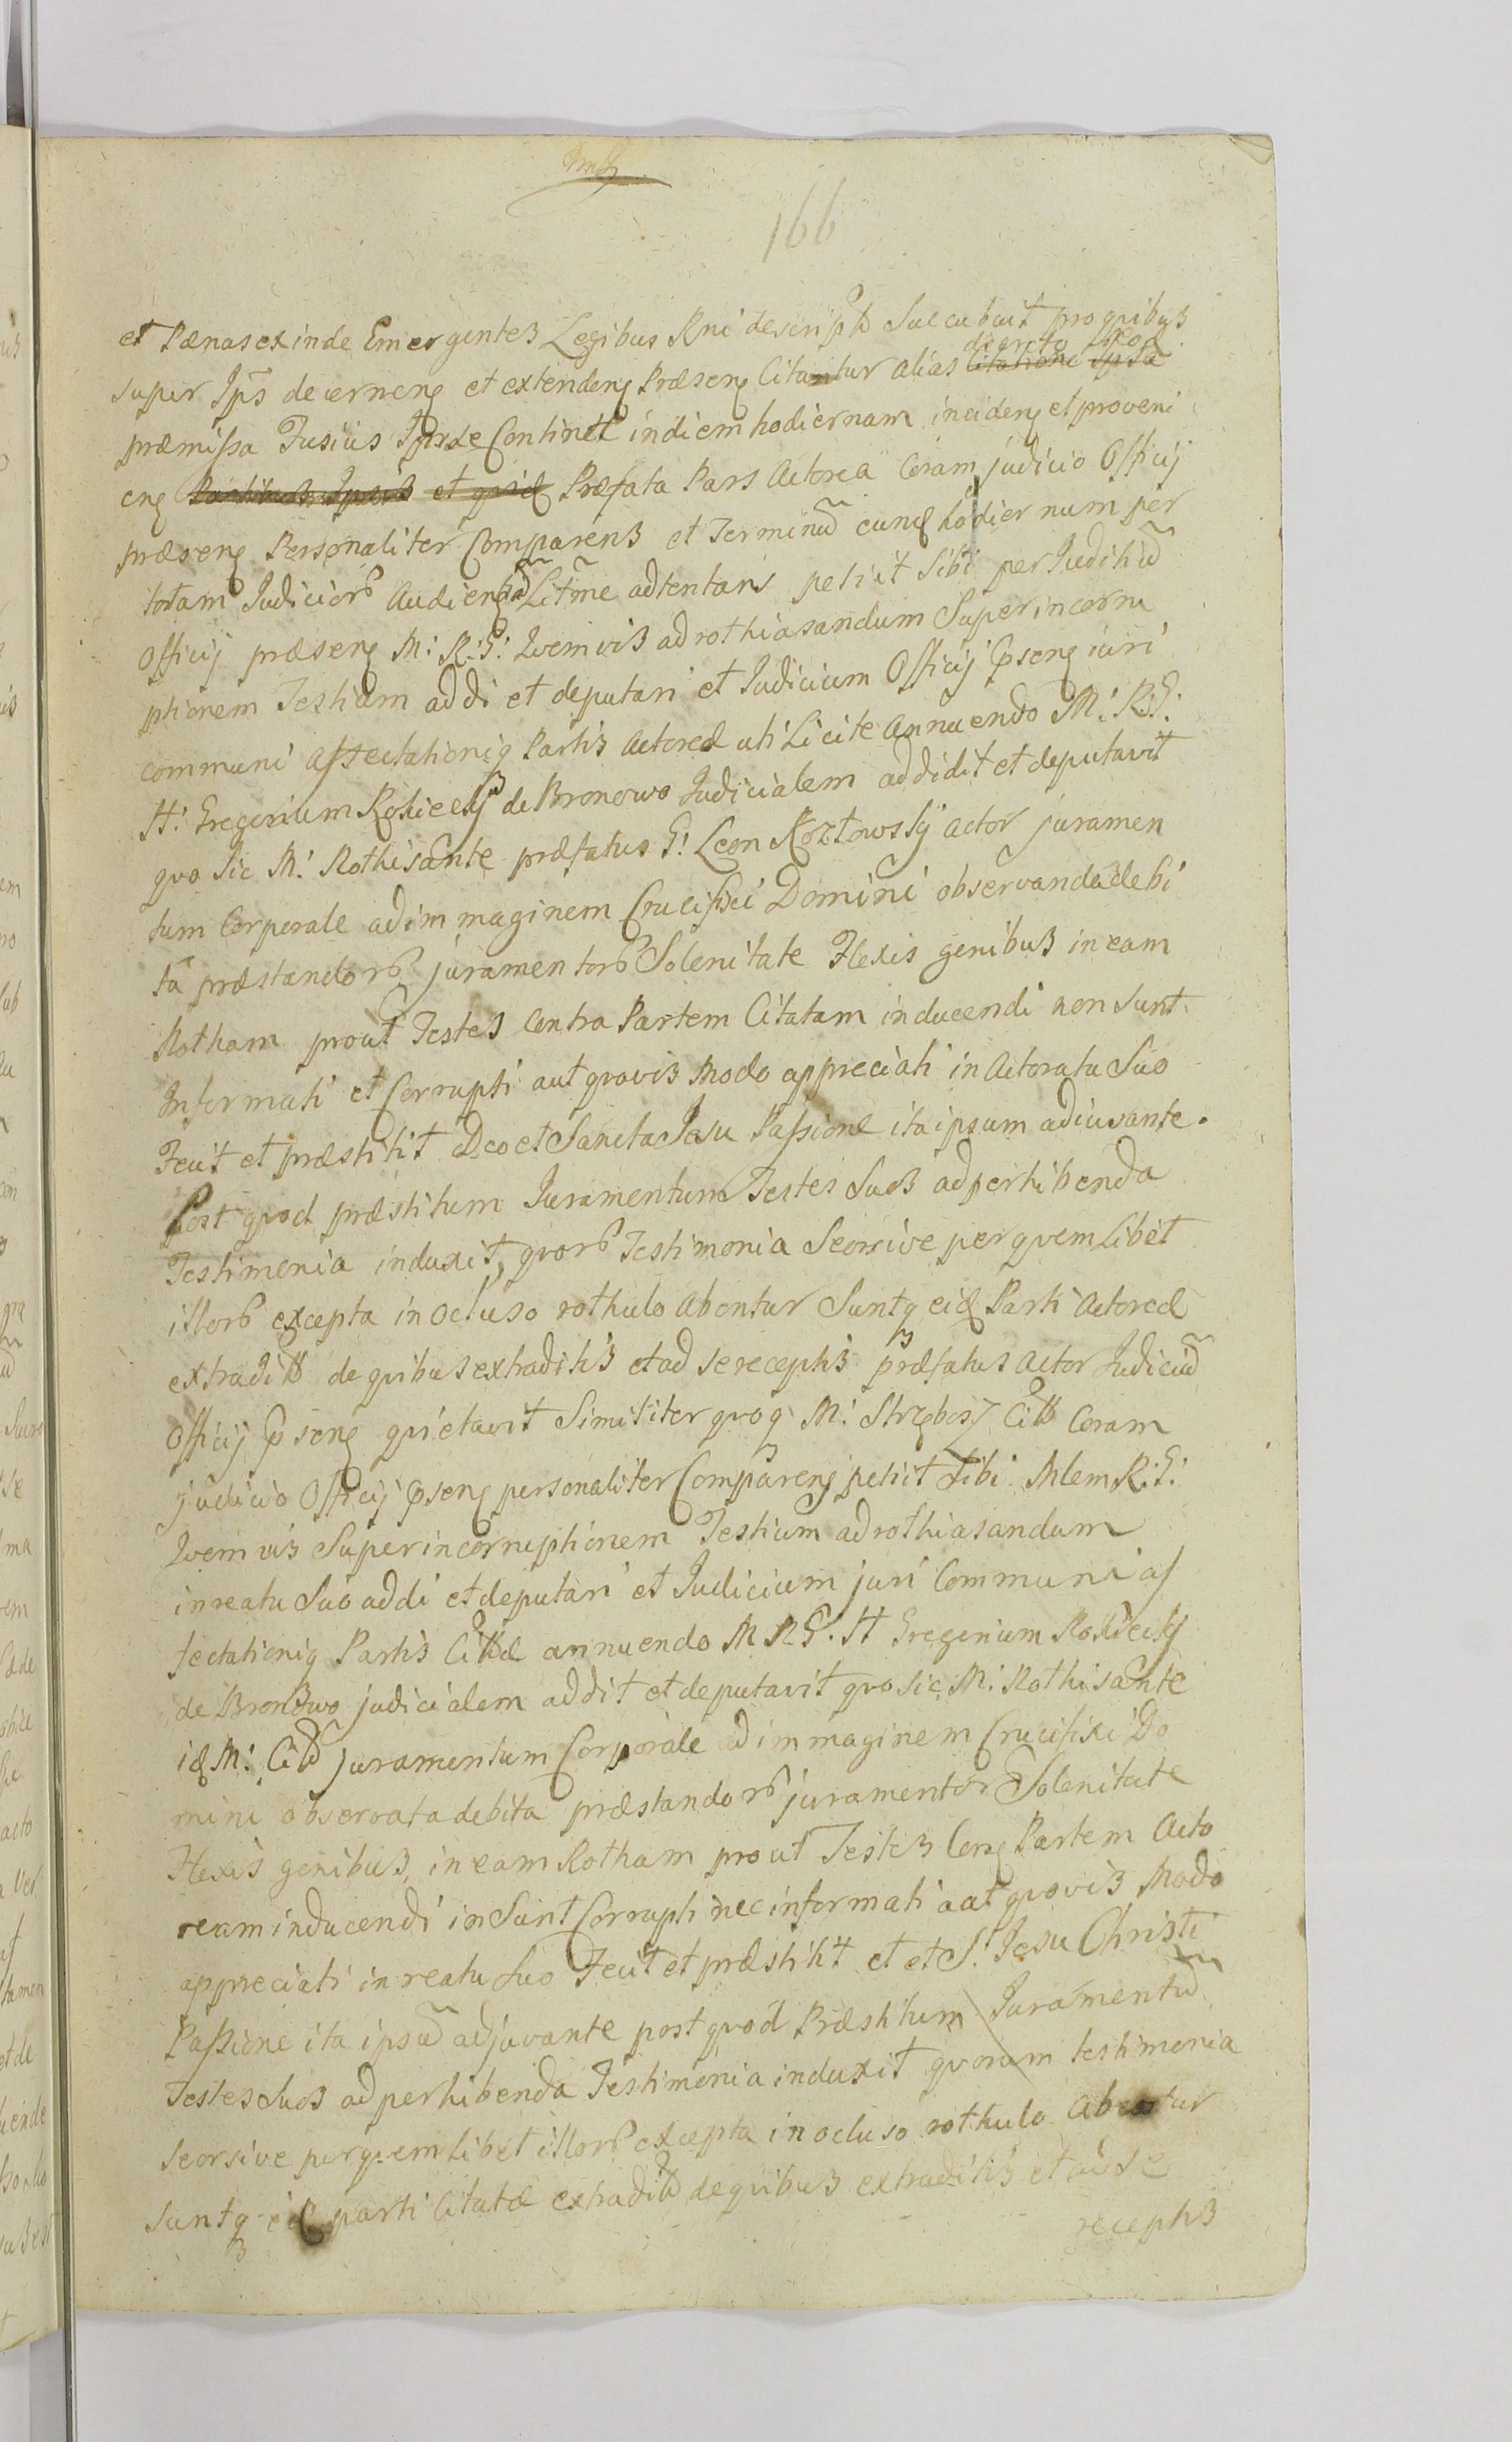 166
et Pænas exinde Emergentes Legibus Rni descriptis Succubuit pro quibus
decreto
super Ips decernens et extendens Præsens Citantur alias Citatione Ipsa
præmissa Fusius Ipsde Continet in diem hodiernam incidens et proveni
ens Partibus Ipsis et quid Præfata Pars Actorea Coram judicio Officij
præsens Personaliter Comparens et Terminũ eund hodiernum per
totam Judiciorũ Audienẽ Litme adtentans petiit Sibi per Judiciũ
Officij præsens M: R: G: Quemvis ad rothisandum Super incorru
ptionem Testium addi et deputari et Judicium Officij Psens iuri
communi affectationiq Partis Actoreæ uti Licite annuendo M: R: G:
H: Gregorium Rokicky de Bronowo Judicialem addidit et deputavit
quo Sic M: Rothisante præfatus G: Leon Kozłowsky actor juramen
tum Corporale ad immaginem Crucifixi Domini observanda debi
ta præstandorũ juramentorũ Solenitate Flexis genibus in eam
Rotham prout Testes Contra Partem Citatam inducendi non Sunt
Informati et Corrupti aut quovis Modo appreciati in Actoratu Suo
Fecit et præstitit Deo et Sancta Jesu Passione ita ipsum adiuvante.
Post quod præstitum Juramentum Testes Suos ad perhibenda
Testimonia induxit, quorũ Testimonia Seorsive per quemlibet
illorũ excepta in ocluso rothulo abentur Suntq eid Parti Actoreæ
extradita de quibus extraditis et ad se receptis præfatus Actor Judiciũ
Officij Psens quietavit Similiter quoq M: Strzebosz Citts Coram
judicio Officij Psens personaliter Comparens petiit Sibi Mlem R: G:
Quemvis Super incorruptionem Testium ad rothisandum
in reatu Suo addi et deputari et Judicium juri Communi af
fectationiq Partis Cittæ annuendo M R G. H Gregorium Rokicky
de Bronowo judicialem addit et deputavit quo Sic M: Rothisante
id M: Citts juramentum Corporale ad immaginem Crucifixi Do
mini observata debita præstandorũ juramentor Solenitate
Flexis genibus, in eam Rotham prout Testes Cons Partem Acto
ream inducendi in Sunt Corrupti nec informati aut quovis Modo
appreciati in reatu Suo Fecit et præstitit et et S. Jesu Christi
Passione ita ipsũ adjuvante post quod Præstitum Juramentũ
Testes Suos ad perhibenda Testimonia induxit quorum testimonia
Seorsive per quemlibet illorũ excepta in ocluso rothulo abentur
Suntq eid parti Citatæ extradita de quibus extraditis et ad se
receptis